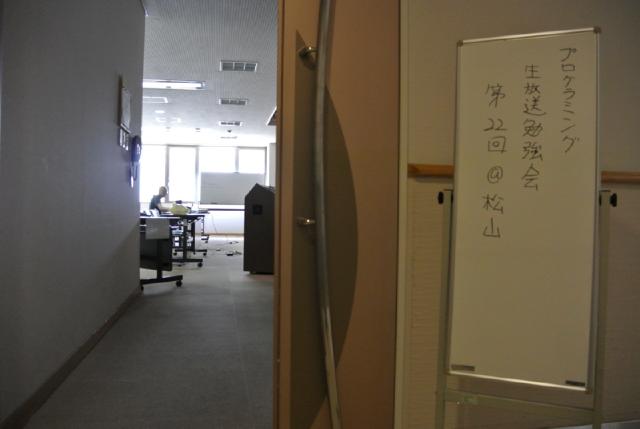 プログラミング
生放送勉強会
第22回@松山